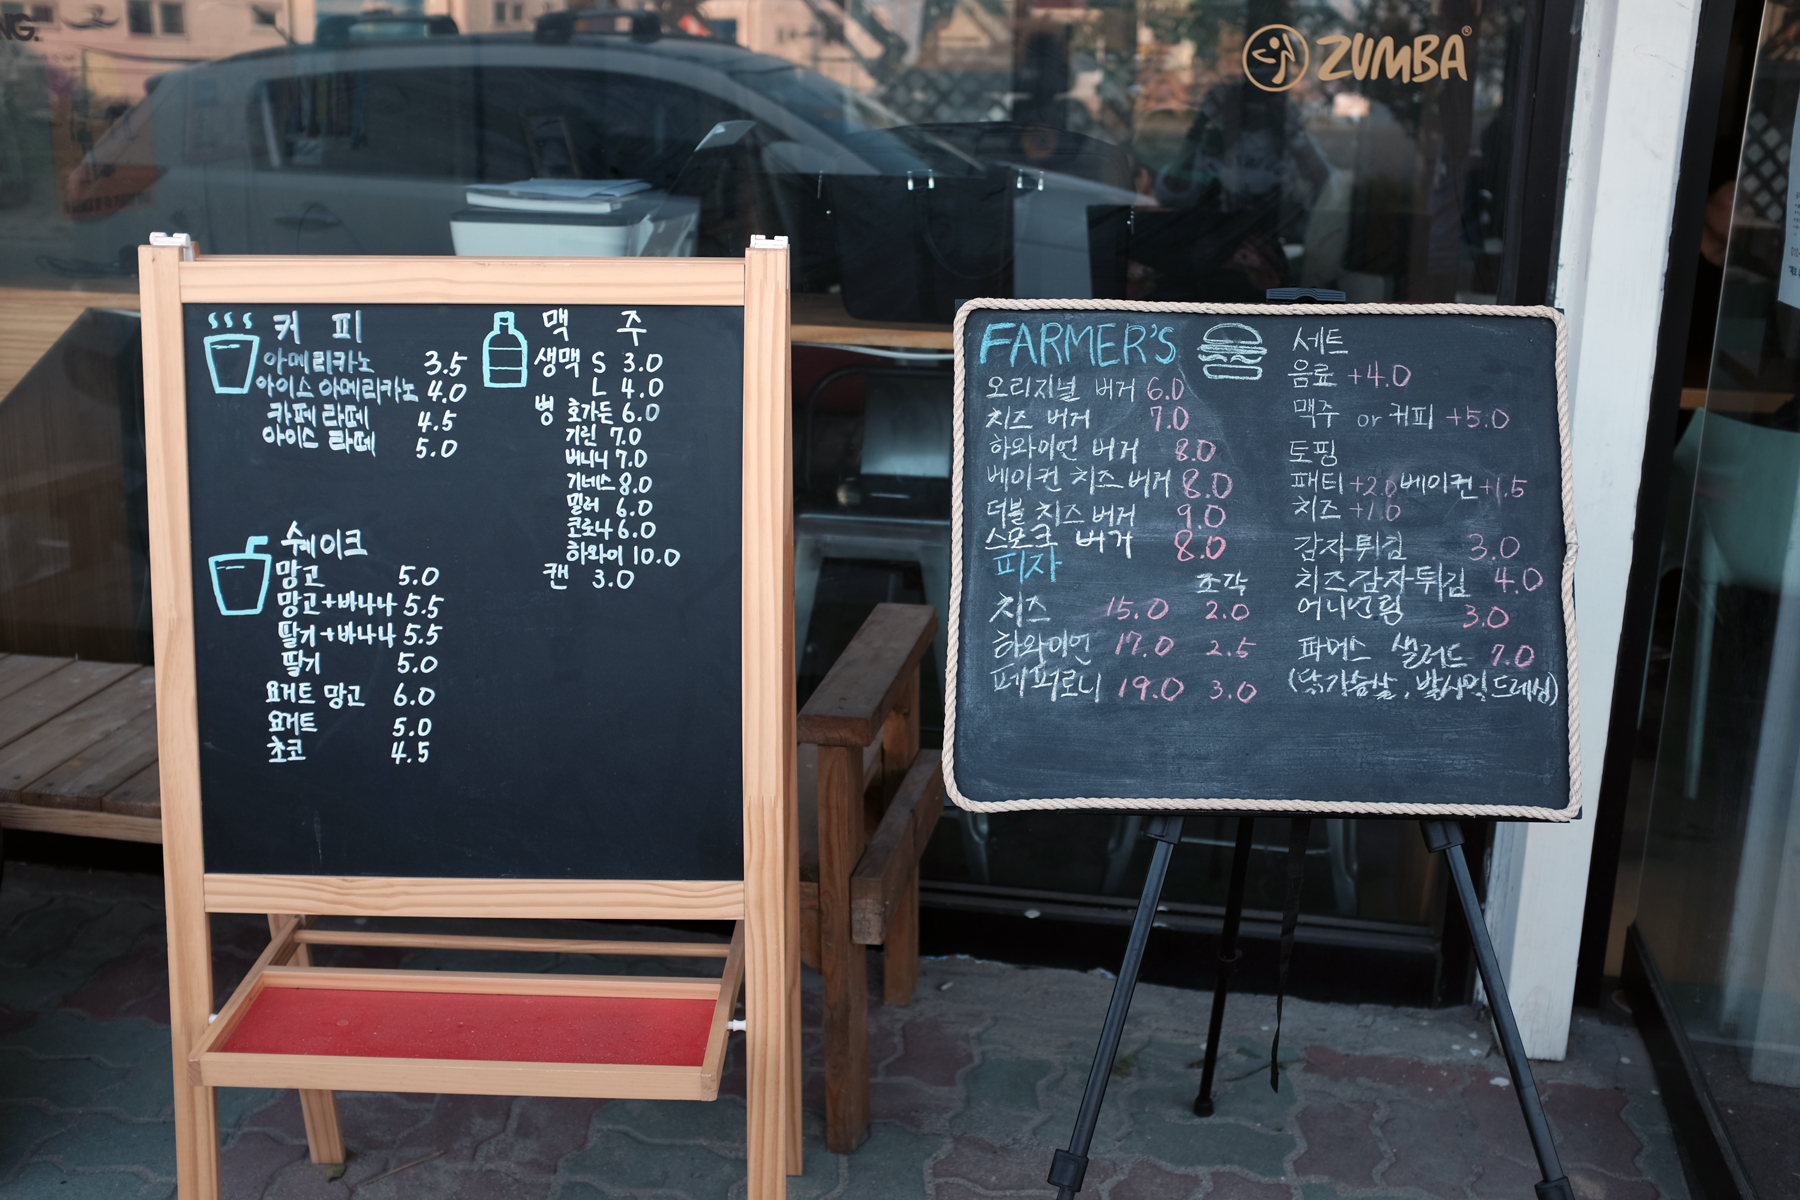 NG.
ZUMBA®
커 피
아메리카노 3.5
아이스 아메리카노 4.0
카페라떼 4.5
아이스 라떼 5.0
쉐이크
망고 5.0
망고+바나나 5.5
딸기+바나나 5.5
딸기 5.0
요거트 망고 6.0
요거트 5.0
초코 4.5
맥 주
생맥 S 3.0
L 4.0
병 호가든 6.0
기린 7.0
버니니 7.0
기네스 8.0
밀러 6.0
코로나 6.0
하와이 10.0
캔 3.0
FARMER'S
오리지널 버거 6.0
치즈 버거 7.0
하와이언 버거 8.0
베이컨 치즈버거 8.0
더블 치즈버거 9.0
스모크 버거 8.0
피자
조각
치즈 15.0 2.0
하와이언 17.0 2.5
페퍼로니 19.0 3.0
세트
음료 +4.0
맥주 or 커피 +5.0
토핑
패티+2.0 베이컨+1.5
치즈 +1.0
감자튀김 3.0
치즈감자튀김 4.0
어니언링 3.0
파머스 샐러드 7.0
(닭가슴살, 발사믹드레싱)